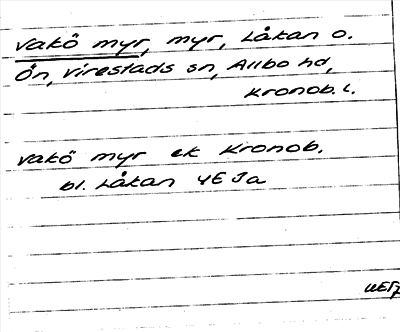 Vakö myr, myr, Låkan o.
Ön, Virestads sn, Allbo hd,
Kronob. l.
Vakö myr ek Kronob.
bl. Låkan 4E3a